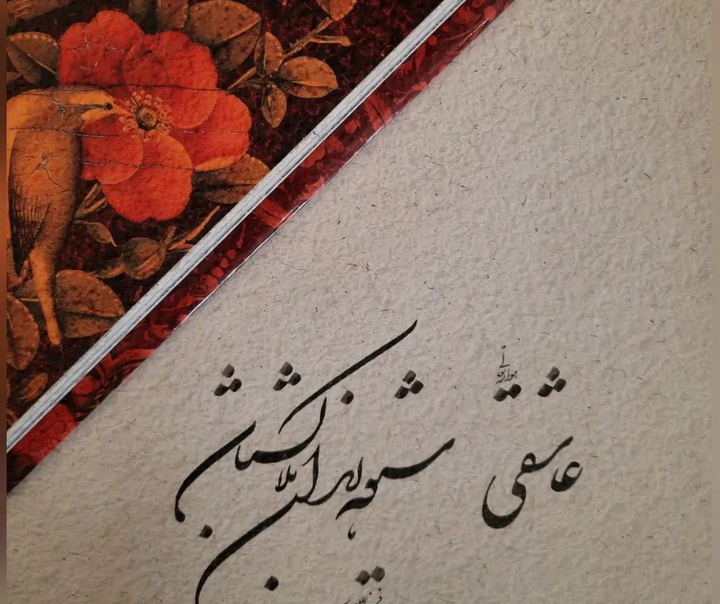 عاشقی شیوه رندان بلاکش باشد